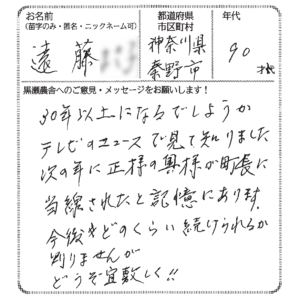 お名前
(苗字のみ・匿名・ニックネーム可)
都道府県
市区町村
年代
遠藤
神奈川県
秦野市
90才
黒瀬農舎へのご意見・メッセージをお願いします!
30年以上になるでしょうか
テレビのニュースで見て知りました
次の年に正様の奥様が町長に
当線されたと記憶にあります
今後もどのくらい続けられるか
判りませんが
どうぞ宜敷しく!!